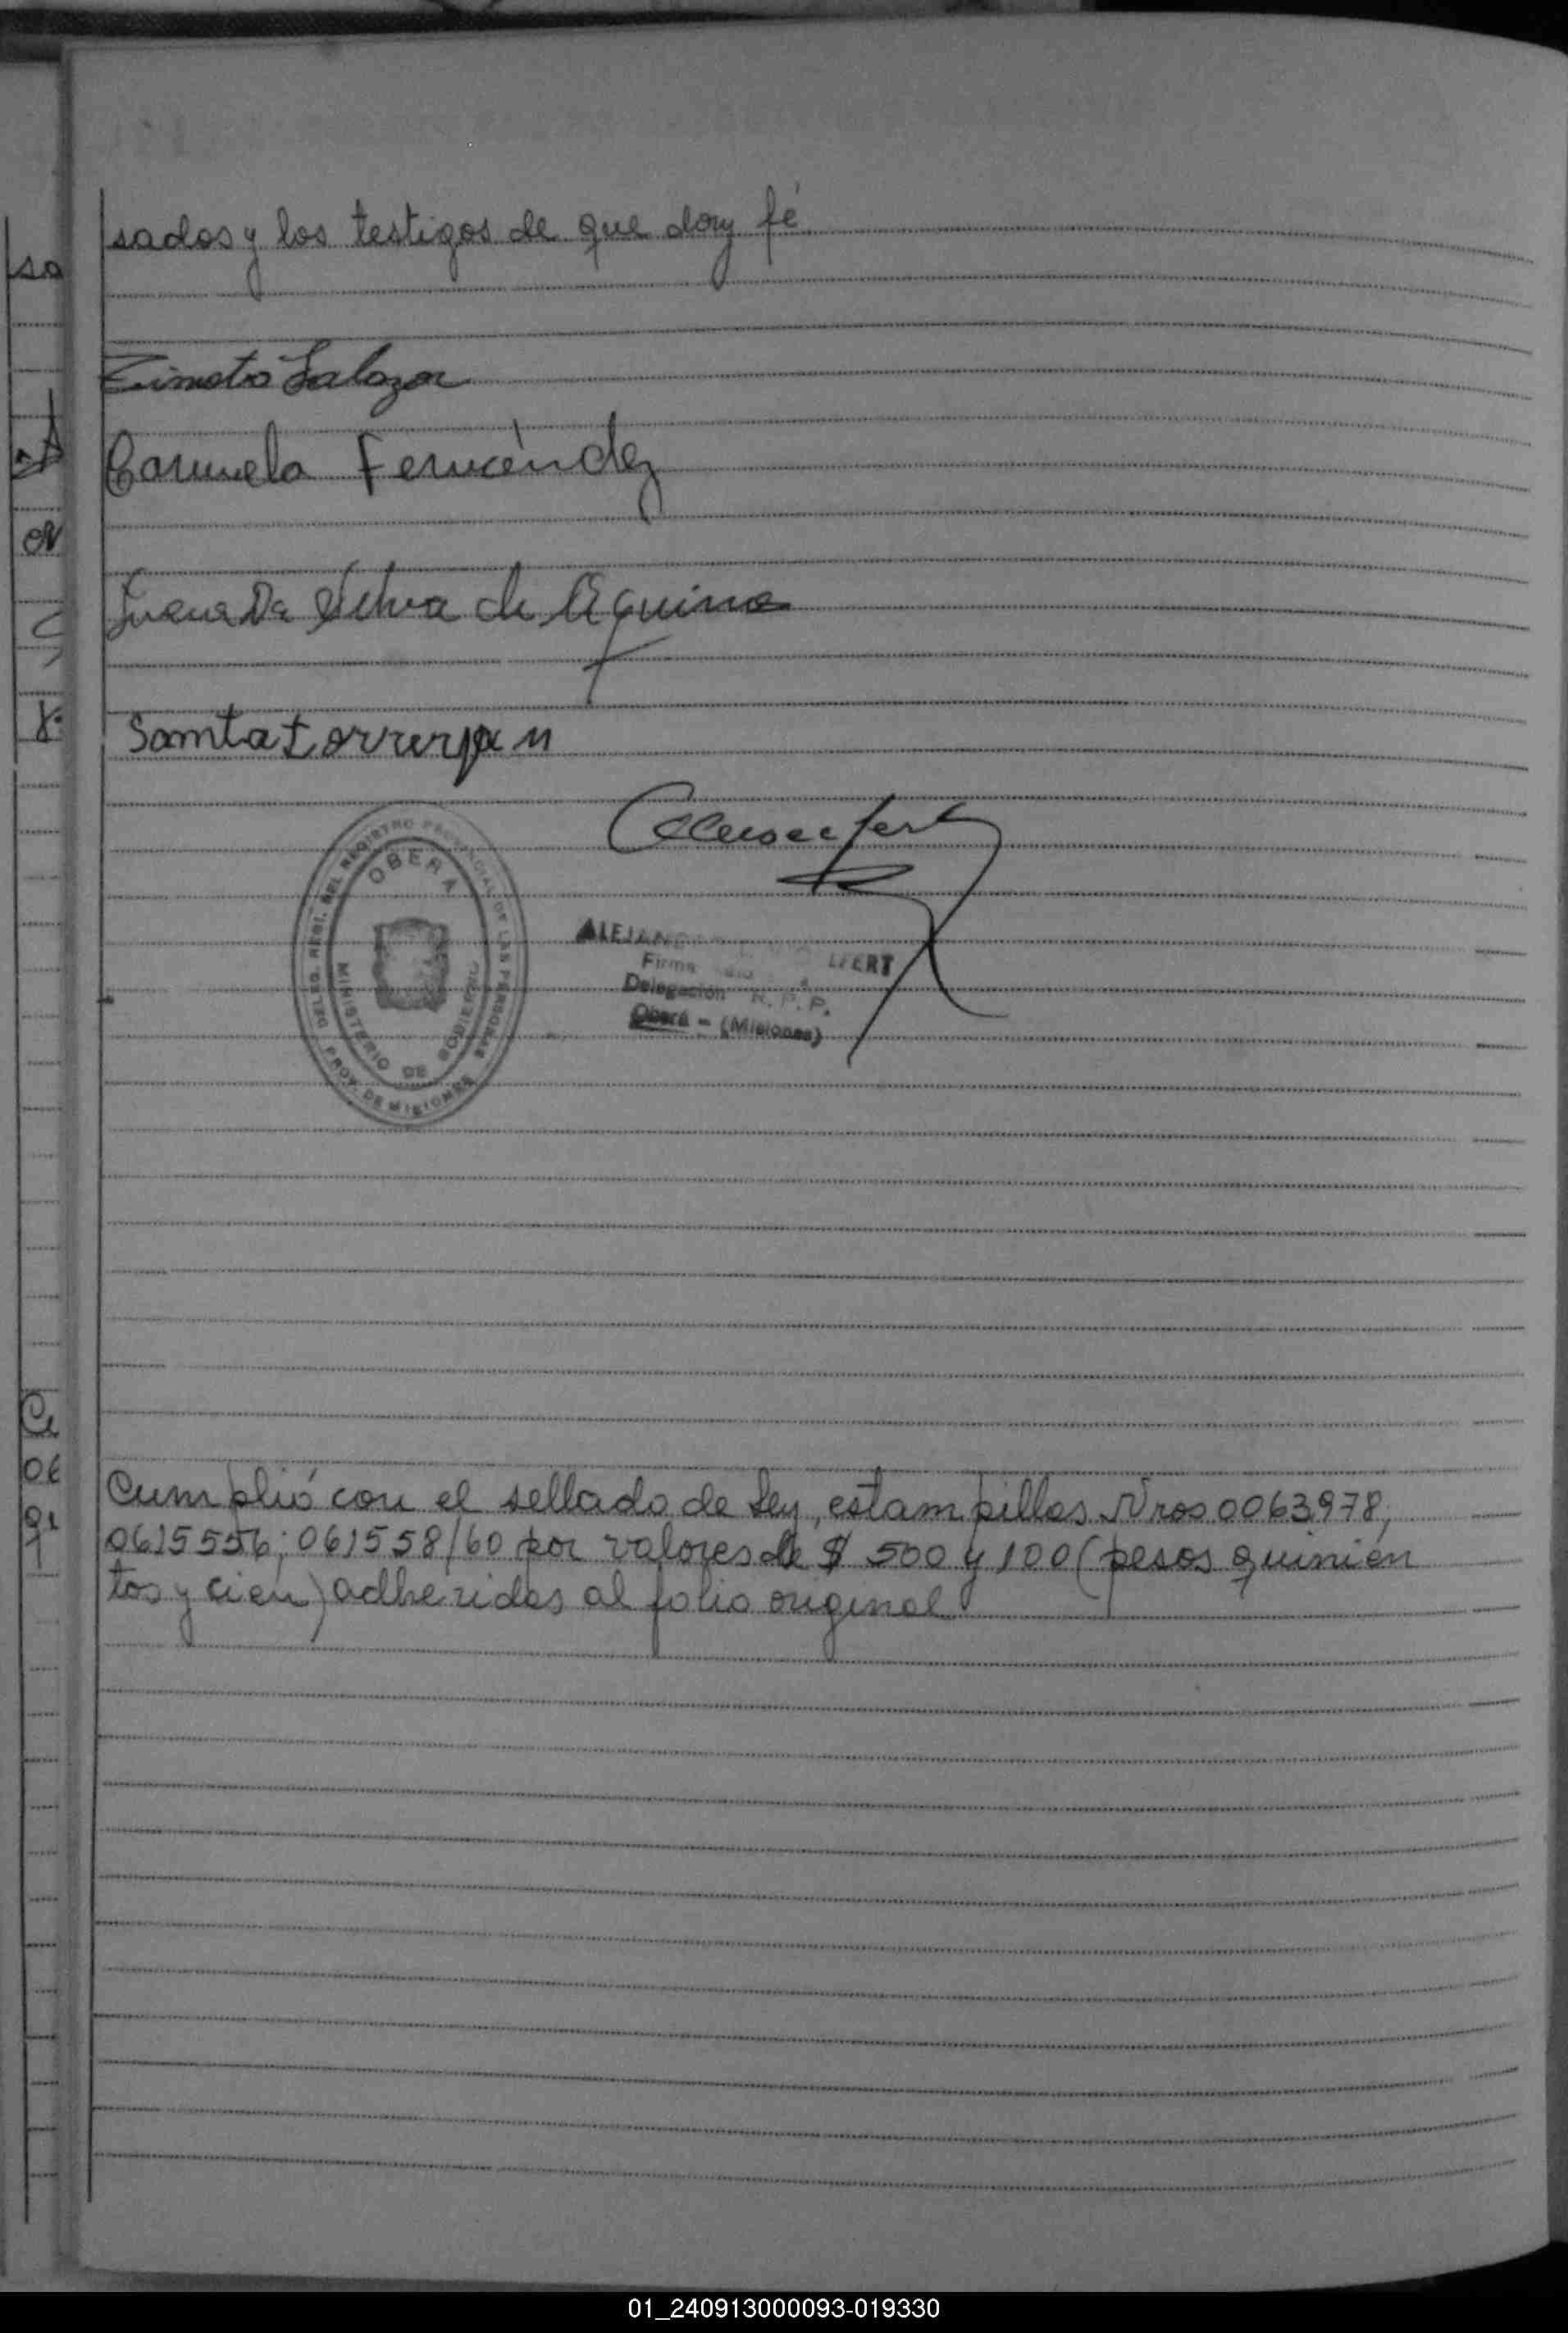 sados y los testigos de que doy fé
Salazar
Carmela Fernández
Juana Da Silva de Aquino
Samta
OBERA
MINISTERIO DE GOBIERNO
DELEG. REST. DEL REGISTRO PROVINCIAL DE LAS PERSONAS
PROV. DE MISIONES
ALEJAND LFERT
Firma
Delegación R. P. P.
Oberá - (Misiones)
Cumplió con el sellado de Ley, estampillas Nros 0063978;
0615556; 061558/60 por valores de $ 500 y 100 (pesos quinien
tos y cien) adheridas al folio original
01_240913000093-019330